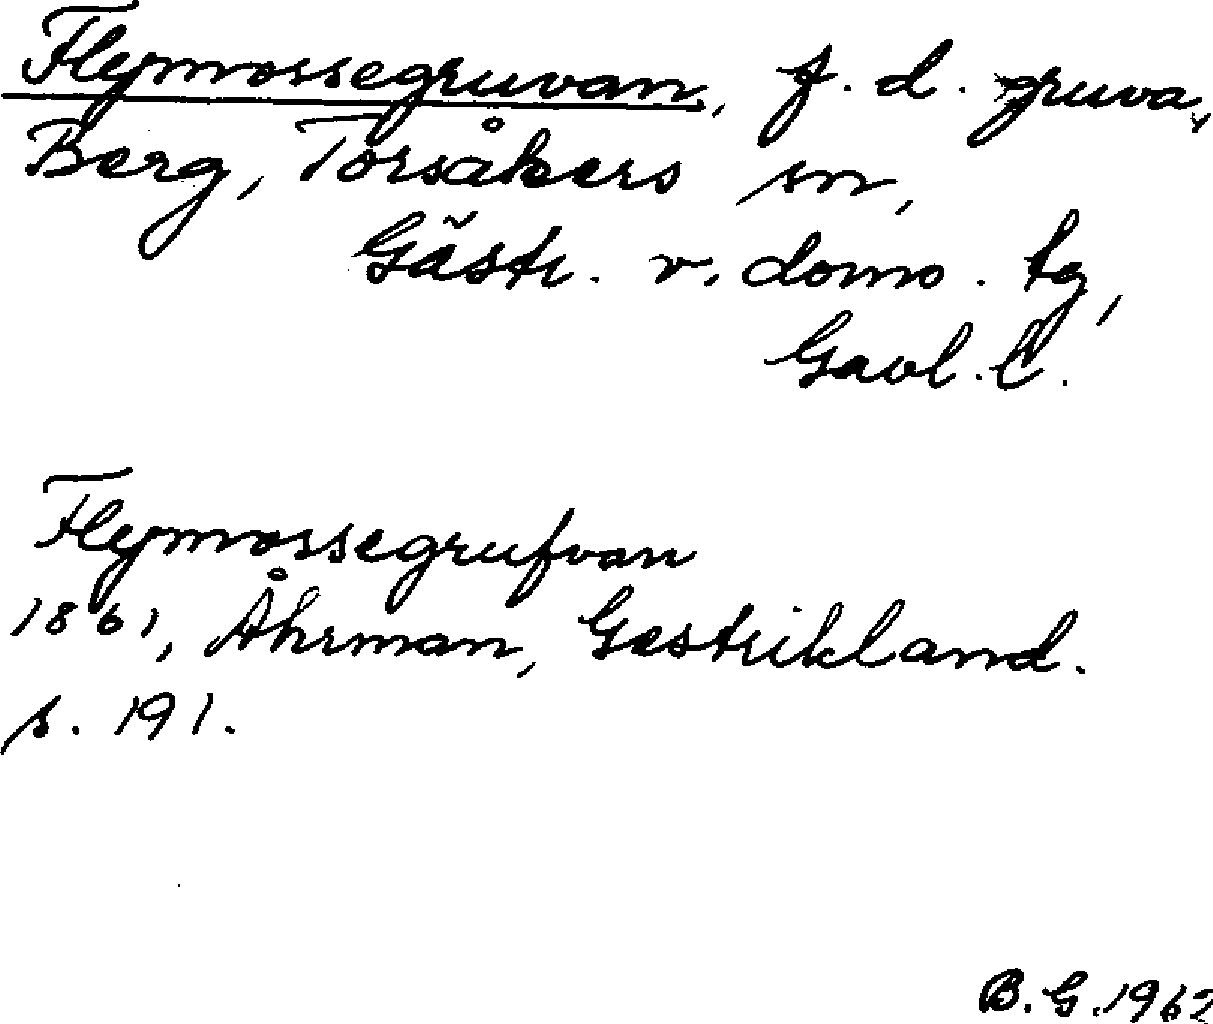 Flymossegruvan, f. d. gruva,
Berg, Torsåkers sn,
Gästr. v. doms. tg,
Gävl. l.
Flymossegrufvan
1861, Åhrman, Gestrikland.
s. 191.
B. G. 1962